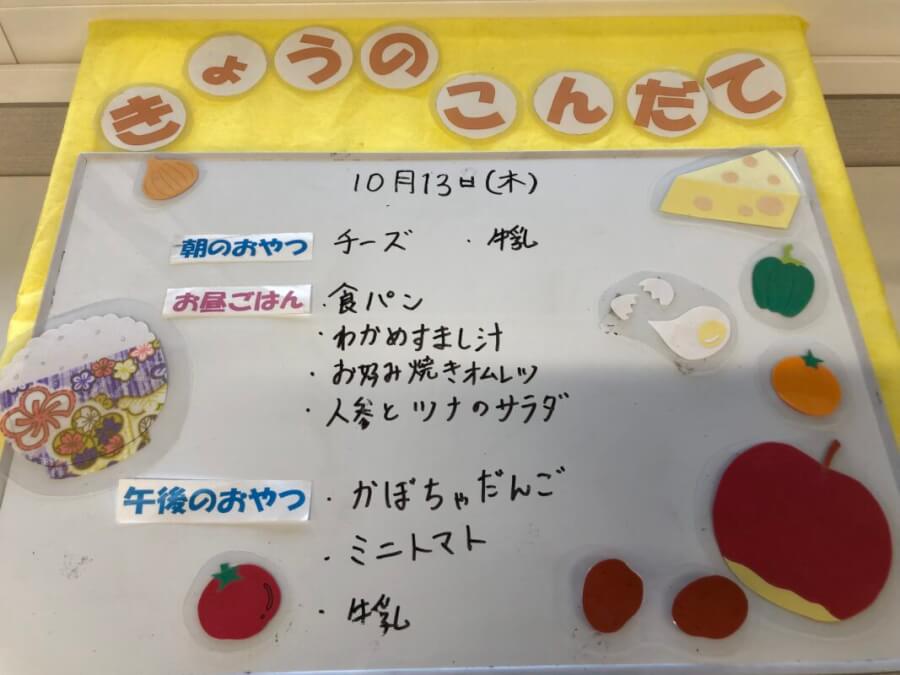 きょうのこんだて
10月13日(木)
朝のおやつ チーズ ・牛乳
お昼ごはん ・食パン
・わかめすまし汁
・お好み焼きオムレツ
・人参とツナのサラダ
午後のおやつ ・かぼちゃだんご
・ミニトマト
・牛乳